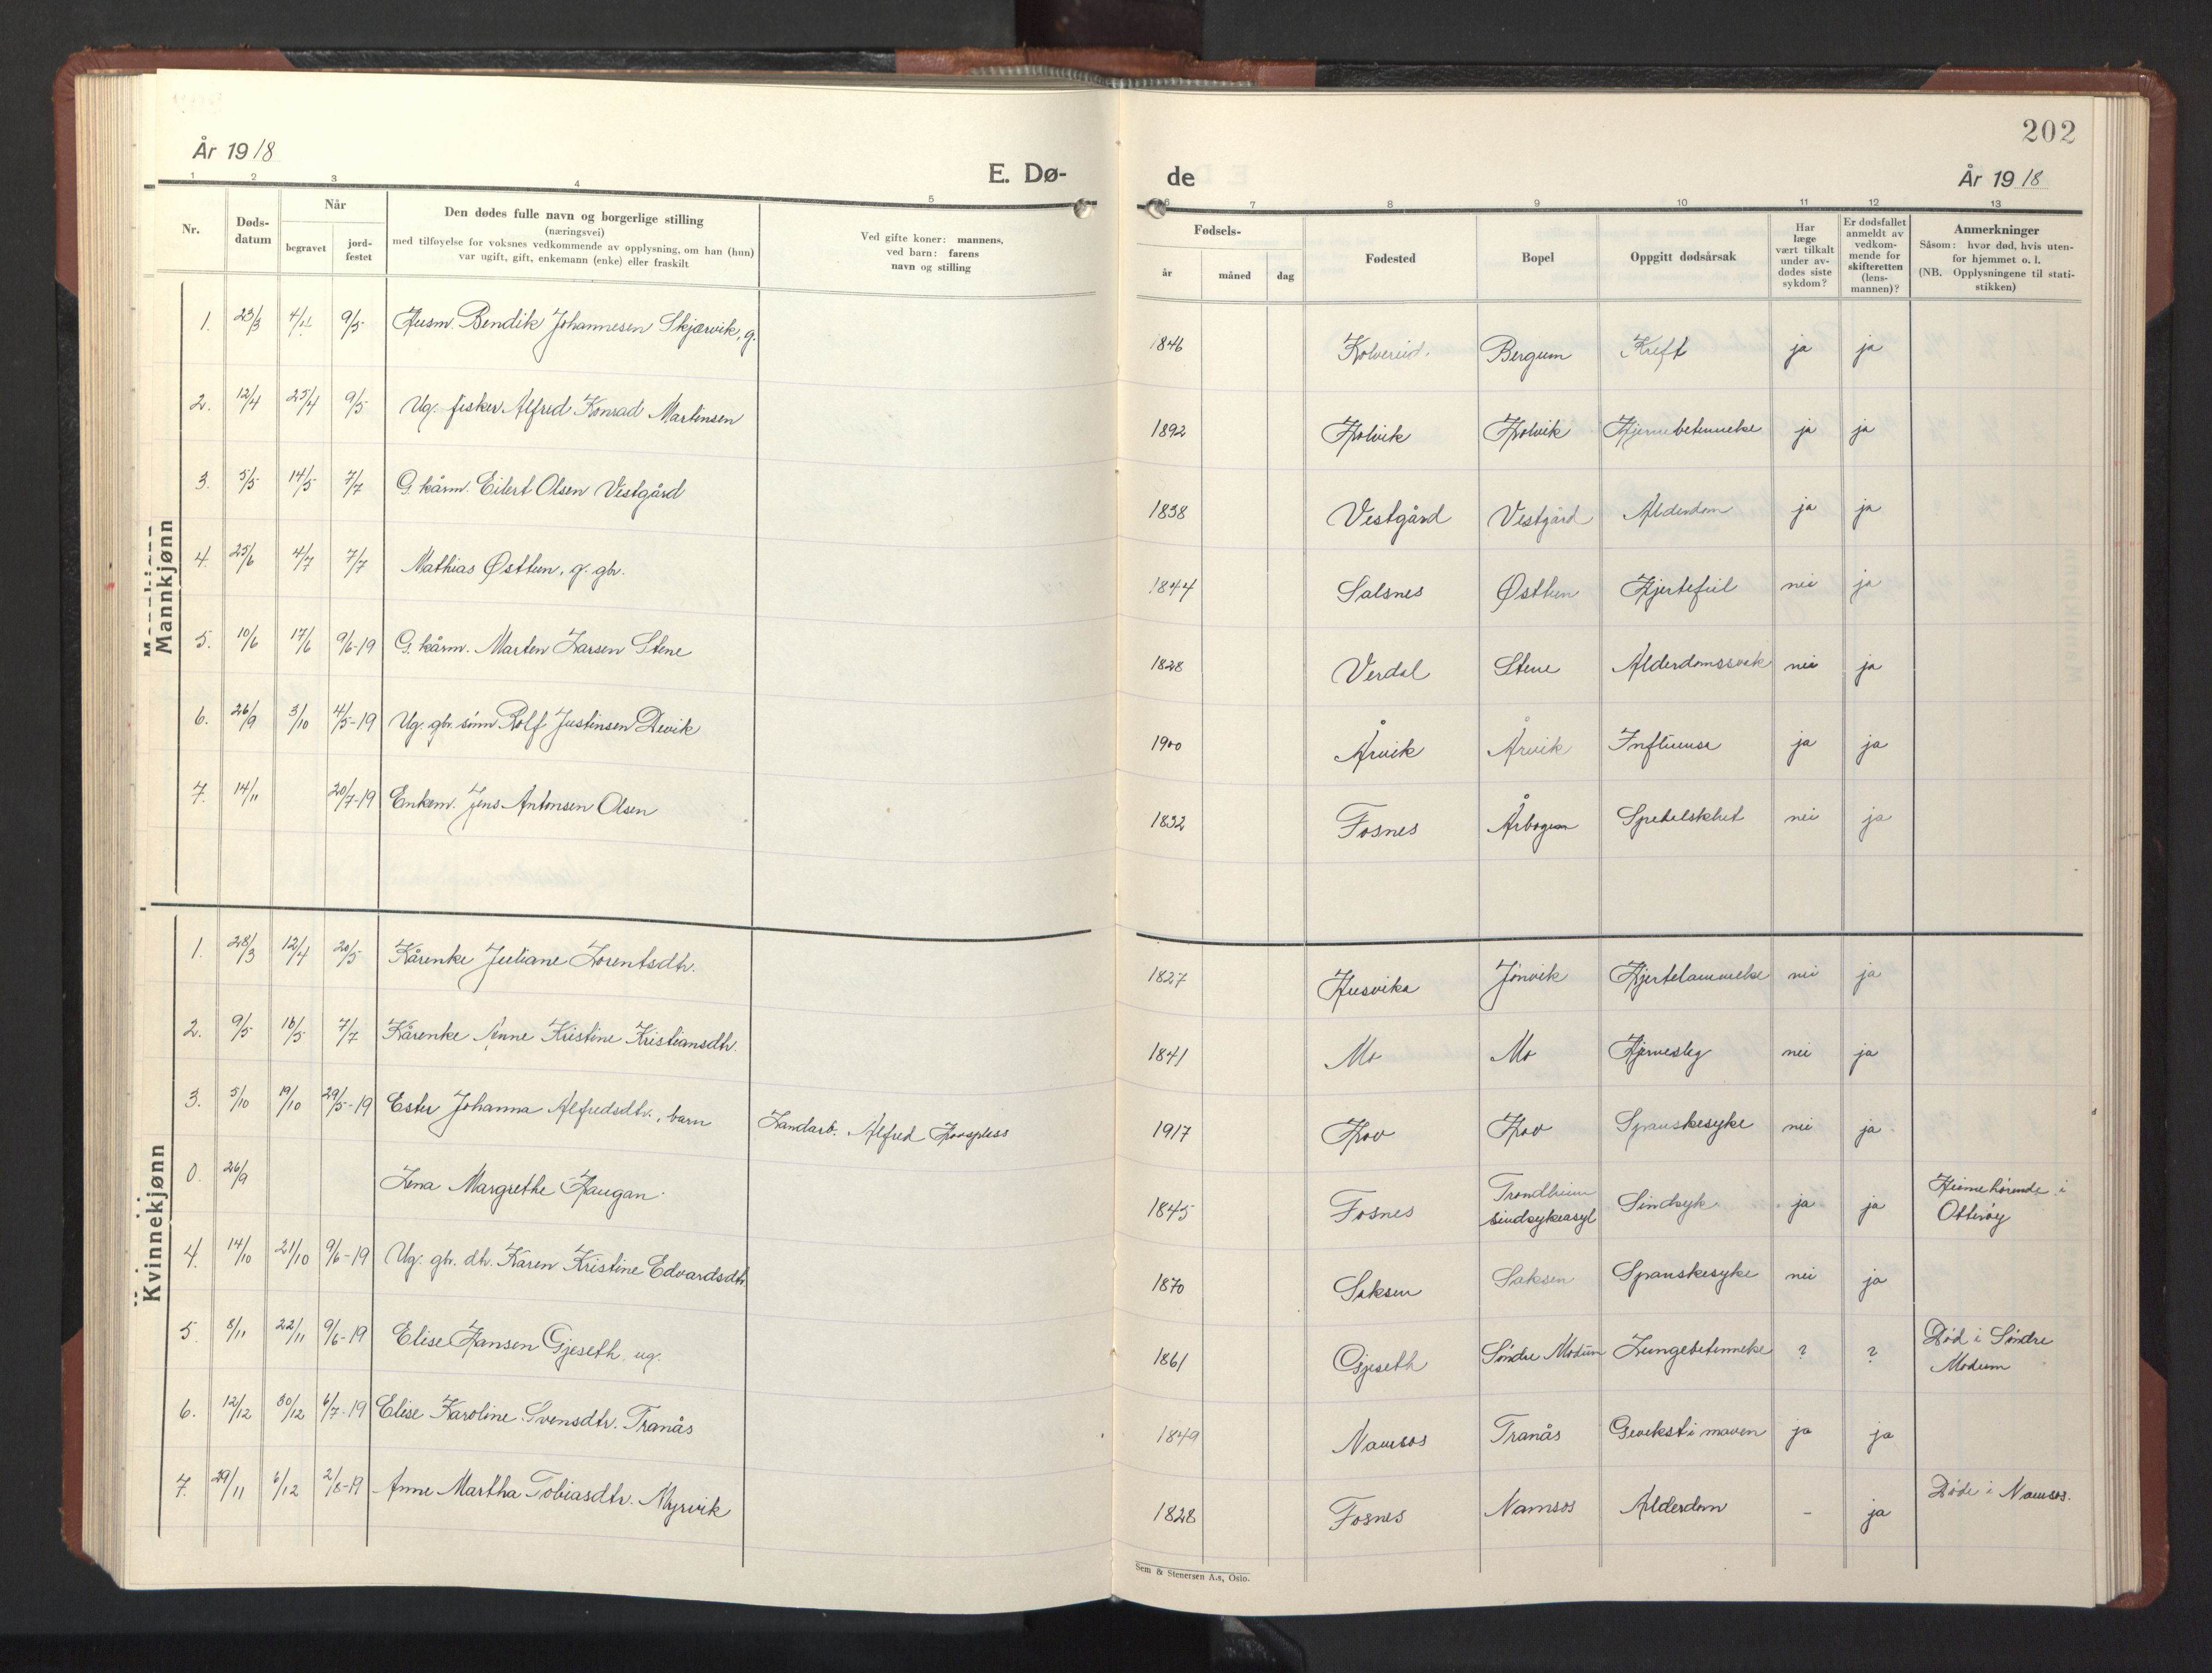 202
År 1918
E. Dø-
de
År 1918
1 2 3 4 5 6 7 8 9 10 11 12 13
Nr.
Døds-
datum
Når
begravet
jord-
festet
Den dødes fulle navn og borgerlige stilling
(næringsvei)
med tilføyelse for voksnes vedkommende av opplysning, om han (hun)
var ugift, gift, enkemann (enke) eller fraskilt
Ved gifte koner: mannens,
ved barn: farens
navn og stilling
Fødsels-
år
måned
dag
Fødested
Bopel
Oppgitt dødsårsak
Har
læge
vært tilkalt
under av-
dødes siste
sykdom?
Er dødsfallet
anmeldt av
vedkom-
mende for
skifteretten
(lens-
mannen)?
Anmerkninger
Såsom: hvor død, hvis uten-
for hjemmet o. l.
(NB. Opplysningene til stati-
stikken)
Mannkjønn
1. 23/3 4/4 9/5 Husm. Bendik Johannesen Skjærvik, g. 1846 Kolvereid. Bergum Kreft ja ja
2. 12/4 25/4 9/5 Ug. fisker Alfred Konrad Martinsen 1892 Holvik Holvik Hjernebetennelse ja ja
3. 5/5 14/5 7/7 G. kårm. Eilert Olsen Vestgård 1838 Vestgård Vestgård Alderdom ja ja
4. 25/6 4/7 7/7 Mathias Østtun, g. gbr. 1844 Salsnes Østtun Hjertefeil nei ja
5. 10/6 17/6 9/6-19 G. kårm. Marten Larsen Stene 1828 Verdal Stene Alderdomssvak nei ja
6. 26/9 3/10 4/5-19 Ug. gbr. sønn Rolf Justinsen 1900 Årvik Årvik Influensa ja ja
7. 14/11 20/7-19 Enkem. Jens Antonsen Olsen 1832 Fosnes Spedalskhet nei ja
Kvinnekjønn
1. 28/3 12/4 20/5 Kårenke Juliane Lorentsdtr. 1827 Husvika Jønvik Hjertelammelse nei ja
2. 9/5 16/5 7/7 Kårenke Anne Kristine Kristiansdtr. 1841 Mo Mo Hjerneslag nei ja
3. 5/10 19/10 29/5-19 Ester Johanna Alfredsdtr., barn Landarb. Alfred Hovspless 1917 Hov Hov Spanskesyke nei ja
0. 26/9 Lena Margrethe Haugan. 1845 Fosnes Trondheim
sindsykeasyl Sindsyk ja ja Hjemehørende i
Otterøy
4. 14/10 21/10 9/6-19 Ug. gbr. dtr. Karen Kristine Edvardsdtr. 1870 Saksen Saksen Spanskesyke nei ja
5. 8/11 22/11 9/6-19 Elise Hansen Gjeseth, ug. 1861 Gjeseth Søndre Modum Lungebetennelse ? ? Død i Søndre
Modum
6. 12/12 30/12 6/7-19 Elise Karoline Svensdtr. Tranås 1849 Namsos Tranås Gevekst i maven ja ja
7. 29/11 6/12 2/8-19 Anne Martha Tobiasdtr. Myrvik 1828 Fosnes Namsos Alderdom - ja Døde i Namsos.
Sem & Stenersen A.s, Oslo.